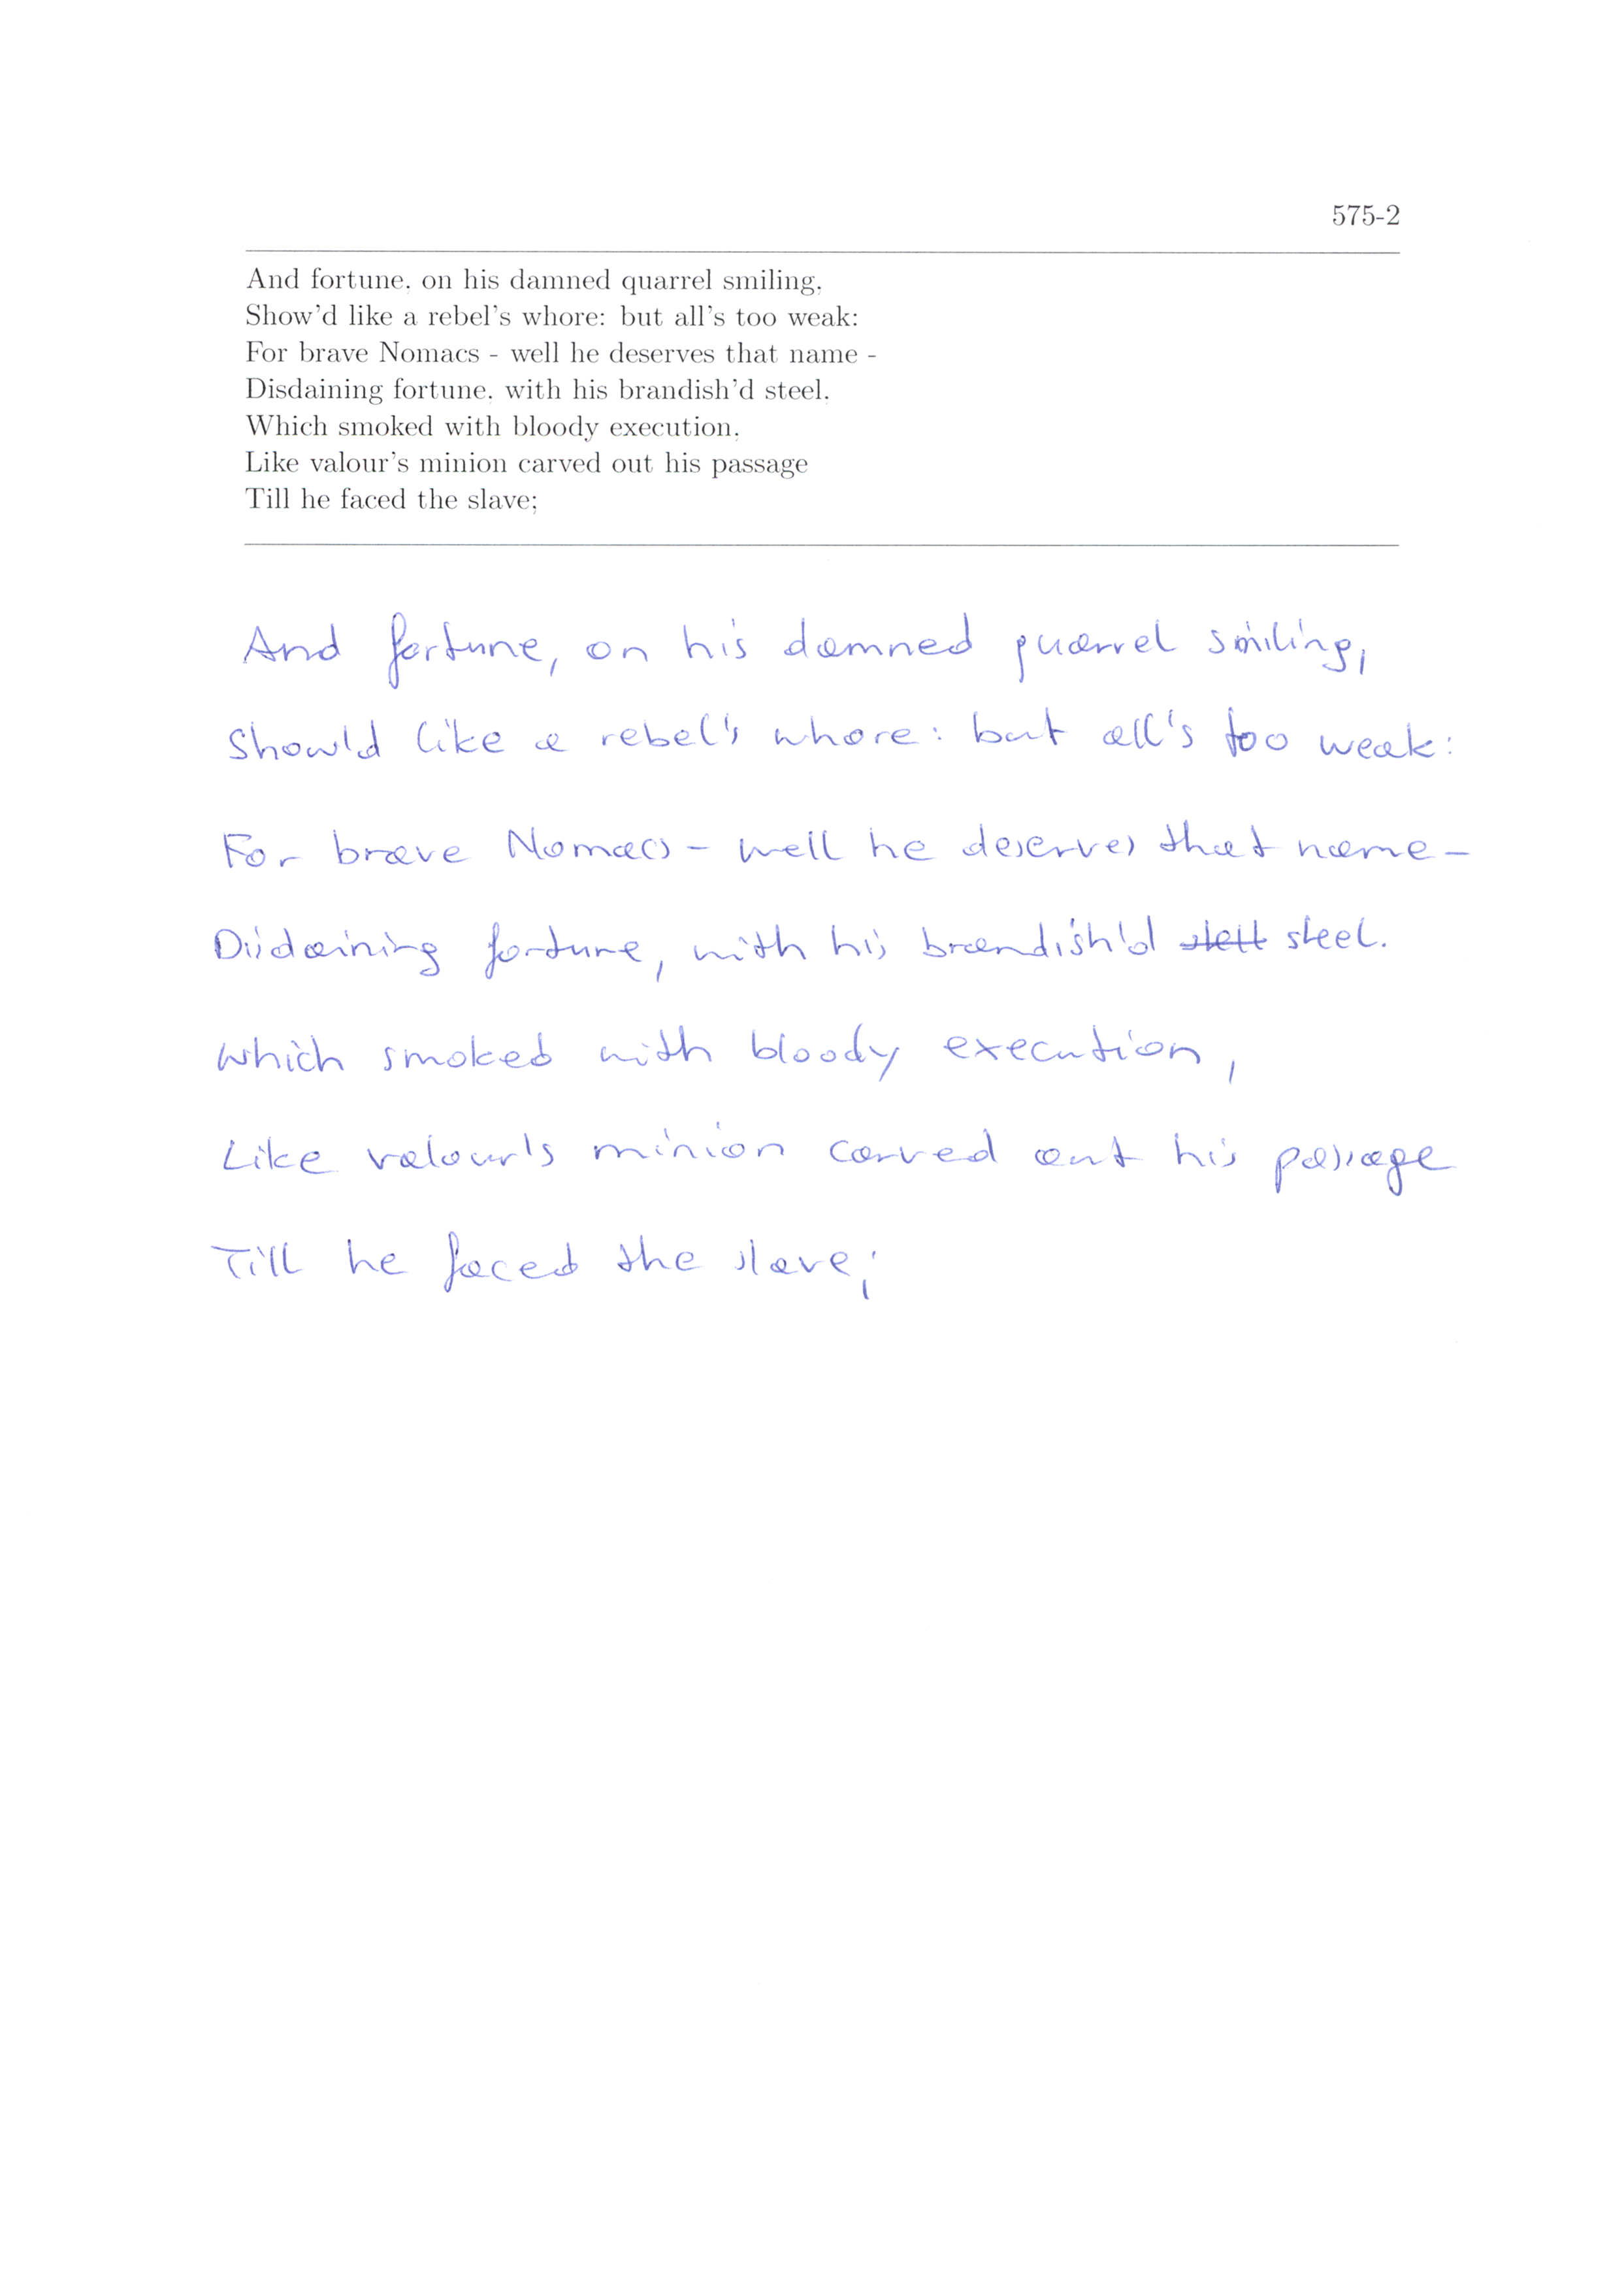 575-2
And fortune, on his damned quarrel smiling,
Show'd like a rebel's whore: but all's too weak:
For brave Nomacs - well he deserves that name -
Disdaining fortune, with his brandish'd steel,
Which smoked with bloody execution,
Like valour's minion carved out his passage
Till he faced the slave;
And fortune, on his damned quarrel smiling,
Show'd like a rebel's whore: but all's too weak:
For brave Nomacs - well he deserves that name -
Disdaining fortune, with his brandish'd steel.
Which smoked with bloody execution,
Like valour's minion carved out his passage
Till he faced the slave;